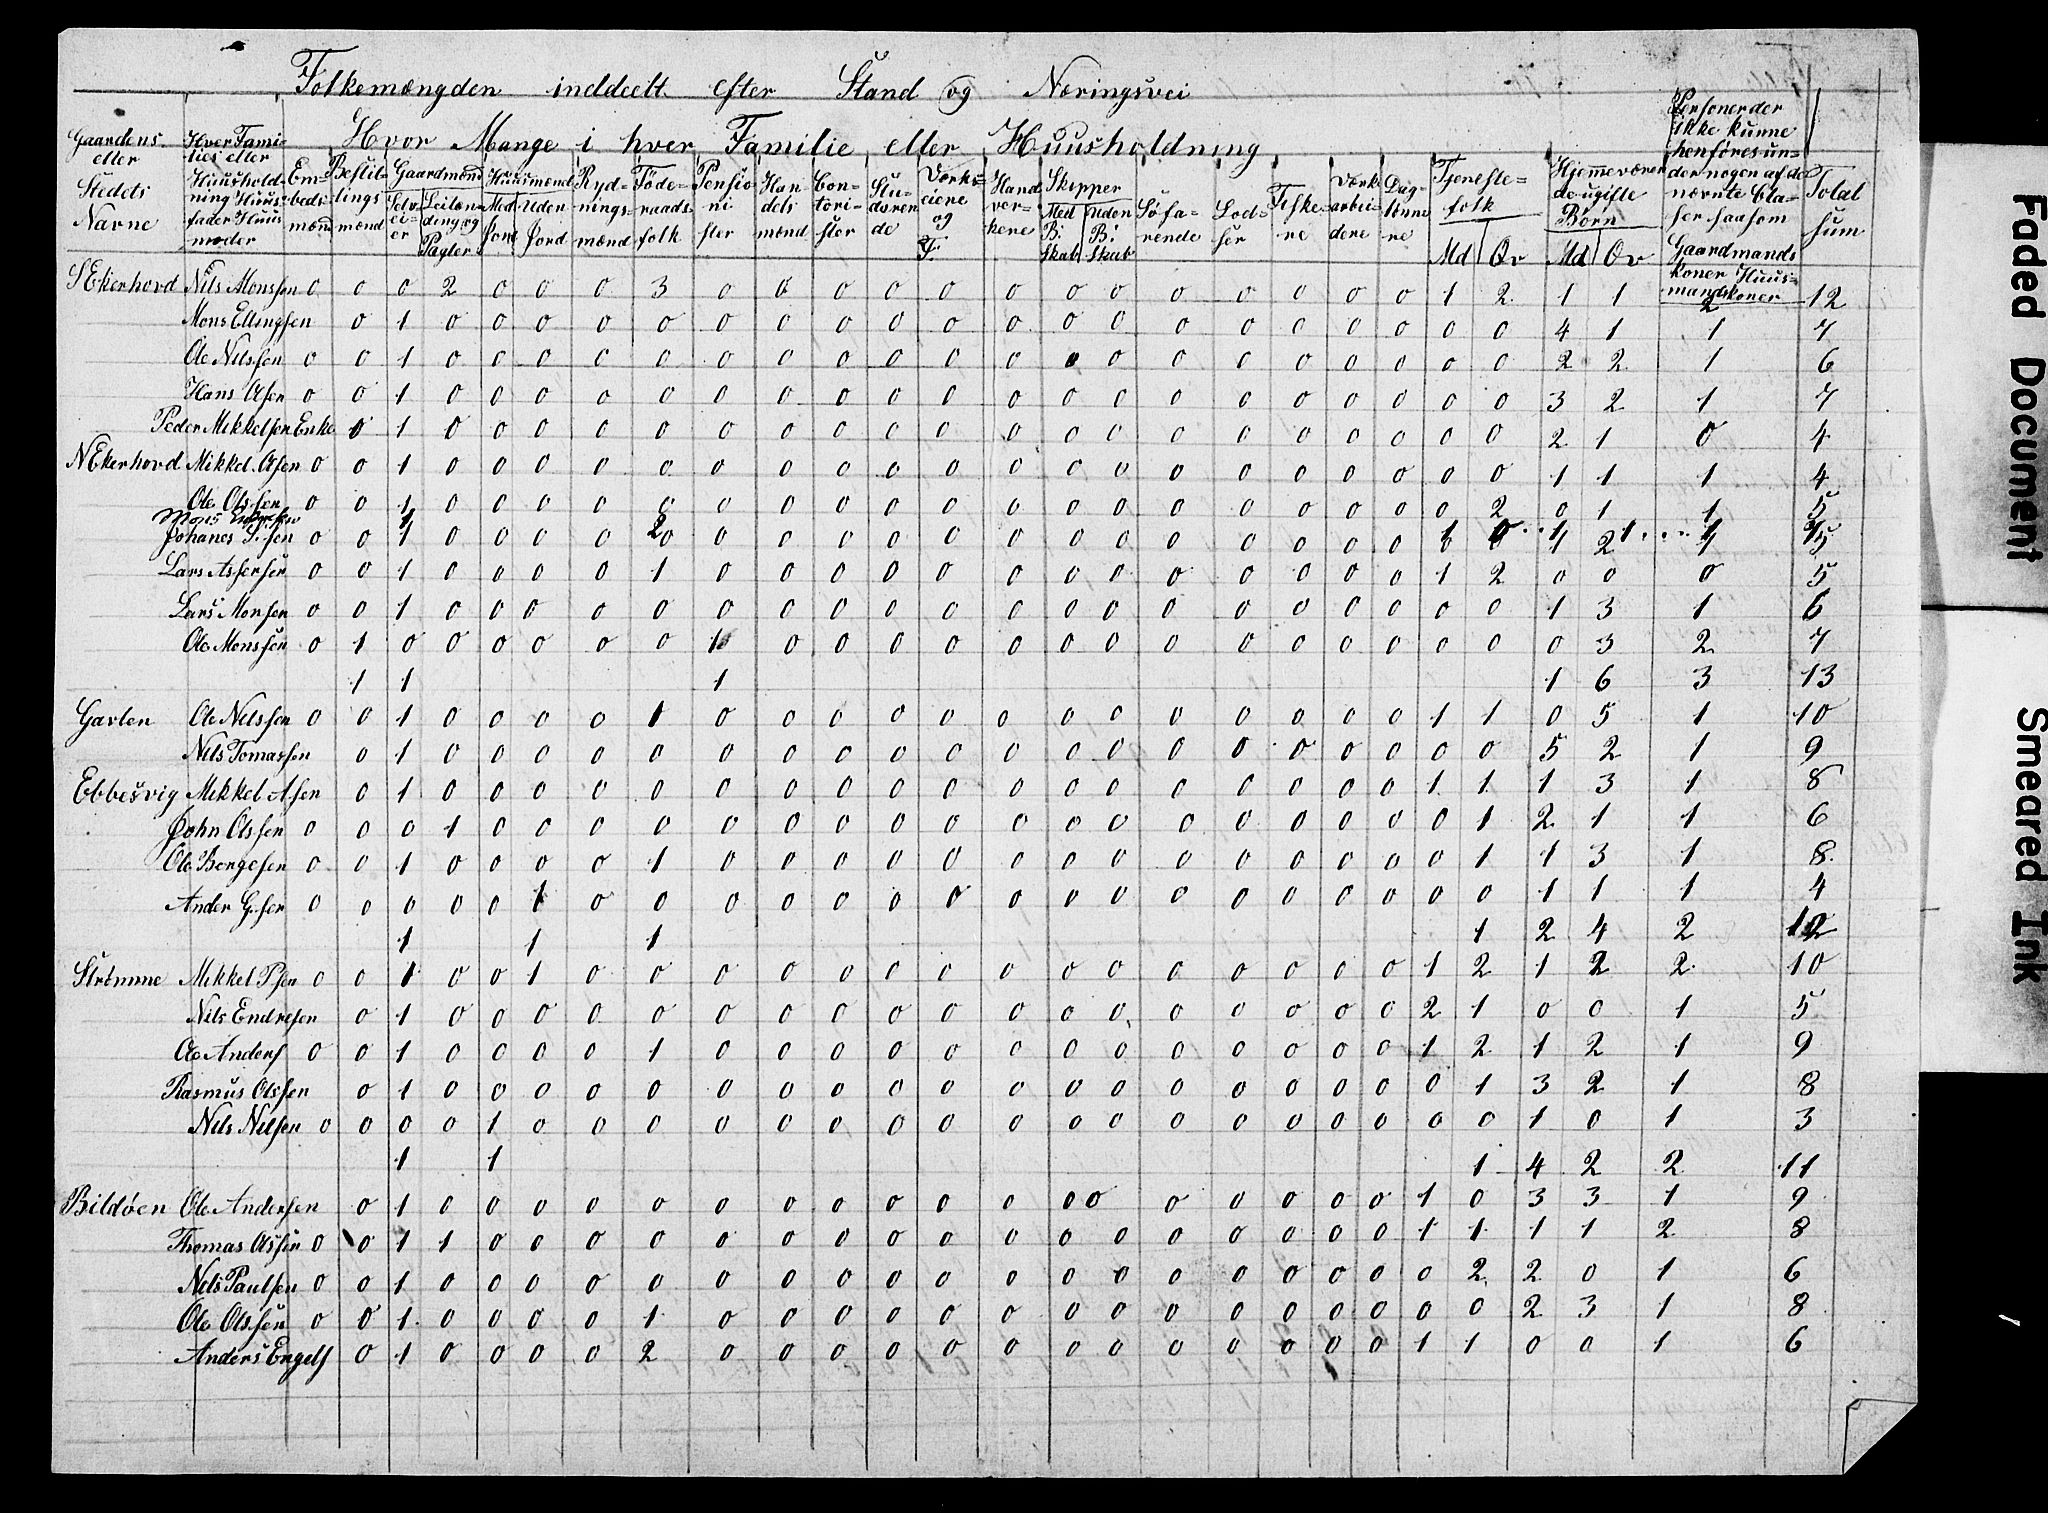 Folkemængden inddeelt efter Stand og Næringsvei
Hvor Mange i hver Familie eller Huusholdning
Gaardens eller Stedets Navne | Hver Families eller Huusholdning Huusfader Huusmoder | Embedsmænd | Bestillingsmænd | Gaardmænd Selveier | Leilænding og Pagter | Huusmænd Med Jord | Uden Jord | Rydningsmænd | Føderaadsfolk | Pensionister | Handelsmænd | Contorister | Studerende | Værkseiere og F. | Handverkere | Skipper Med B:skab | Uden B:skab | Søfarende | Lodser | Fiskere | Værkarbeidere | Daglønnere | Tjenestefolk Md | Qv | Hjemmeværende ugifte Børn Md | Qv | Personer der ikke kunne henføres under nogen af de nævnte Classer saasom Gaardmandskoner Huusmandskoner | Total sum
S Ekerhovd Nils Monssen 0 0 0 2 0 0 0 3 0 0 0 0 0 0 0 0 0 0 0 0 0 1 2 1 1 2 12
Mons Ellingsen 0 1 0 0 0 0 0 0 0 0 0 0 0 0 0 0 0 0 0 0 0 0 4 1 1 7
Ole Nilssen 0 0 1 0 0 0 0 0 0 0 0 0 0 0 0 0 0 0 0 0 0 0 0 2 2 1 6
Hans Olsen 0 0 1 0 0 0 0 0 0 0 0 0 0 0 0 0 0 0 0 0 0 0 0 3 2 1 7
Peder Mikkelsen Enke 0 1 0 0 0 0 0 0 0 0 0 0 0 0 0 0 0 0 0 0 0 0 2 1 0 4
N Ekerhovd Mikkel Olsen 0 0 1 0 0 0 0 0 0 0 0 0 0 0 0 0 0 0 0 0 0 0 0 1 1 1 4
Ole Olssen 0 0 1 0 0 0 0 0 0 0 0 0 0 0 0 0 0 0 0 0 0 0 2 0 1 1 5
Mons 1 2 1 0 1 1 1
Johanes 0 0 1 0 0 0 0 0 0 0 0 0 0 0 0 0 0 0 0 0 0 0 0 1 2 1 5
Lars Assersen 0 0 1 0 0 0 0 1 0 0 0 0 0 0 0 0 0 0 0 0 0 1 2 0 0 0 5
Lars Monsen 0 0 1 0 0 0 0 0 0 0 0 0 0 0 0 0 0 0 0 0 0 0 0 1 3 1 6
Ole Monssen 0 1 0 0 0 0 0 0 1 0 0 0 0 0 0 0 0 0 0 0 0 0 0 0 3 2 7
1 1 1 1 6 3 13
Gavlen Ole Nelssen 0 0 1 0 0 0 0 1 0 0 0 0 0 0 0 0 0 0 0 0 0 1 1 0 5 1 10
Nils Tomassen 0 1 0 0 0 0 0 0 0 0 0 0 0 0 0 0 0 0 0 0 0 0 5 2 1 9
Ebbesvig Mikkel Asen 0 1 0 0 0 0 0 0 0 0 0 0 0 0 0 0 0 0 0 0 1 1 1 3 1 8
John Olssen 0 0 0 1 0 0 0 0 0 0 0 0 0 0 0 0 0 0 0 0 0 0 1 2 1 1 6
Ole Borgesen 0 0 1 0 0 0 0 1 0 0 0 0 0 0 0 0 0 0 0 0 0 0 1 1 3 1 8
Ander G.sen 0 0 0 0 0 1 0 0 0 0 0 0 0 0 0 0 0 0 0 0 0 0 0 1 1 1 4
1 1 1 1 2 4 2 12
Strømme Mikkel Psen 0 0 1 0 0 1 0 0 0 0 0 0 0 0 0 0 0 0 0 0 0 1 2 1 2 2 10
Nils Endresen 0 1 0 0 0 0 0 0 0 0 0 0 0 0 0 0 0 0 0 0 2 1 0 0 1 5
Ole Anders 0 0 1 0 0 0 0 1 0 0 0 0 0 0 0 0 0 0 0 0 0 1 2 1 2 1 9
Rasmus Olssen 0 1 0 0 0 0 0 0 0 0 0 0 0 0 0 0 0 0 0 0 0 1 3 2 1 8
Nils Nilsen 0 0 0 0 1 0 0 0 0 0 0 0 0 0 0 0 0 0 0 0 0 0 0 1 0 1 3
1 1 1 4 2 2 11
Bildøen Ole Andersen 0 1 0 0 0 0 0 0 0 0 0 0 0 0 0 0 0 0 0 0 1 0 3 3 1 9
Thomas Olssen 0 0 1 1 0 0 0 0 0 0 0 0 0 0 0 0 0 0 0 0 0 1 1 1 1 2 8
Nels Paulsen 0 0 1 0 0 0 0 0 0 0 0 0 0 0 0 0 0 0 0 0 0 0 2 2 0 1 6
Ole Olssen 0 0 1 0 0 0 0 1 0 0 0 0 0 0 0 0 0 0 0 0 0 0 0 2 3 1 8
Anders Engels 0 1 0 0 0 0 2 0 0 0 0 0 0 0 0 0 0 0 0 0 1 1 0 0 1 6
Faded Document
Smeared Ink